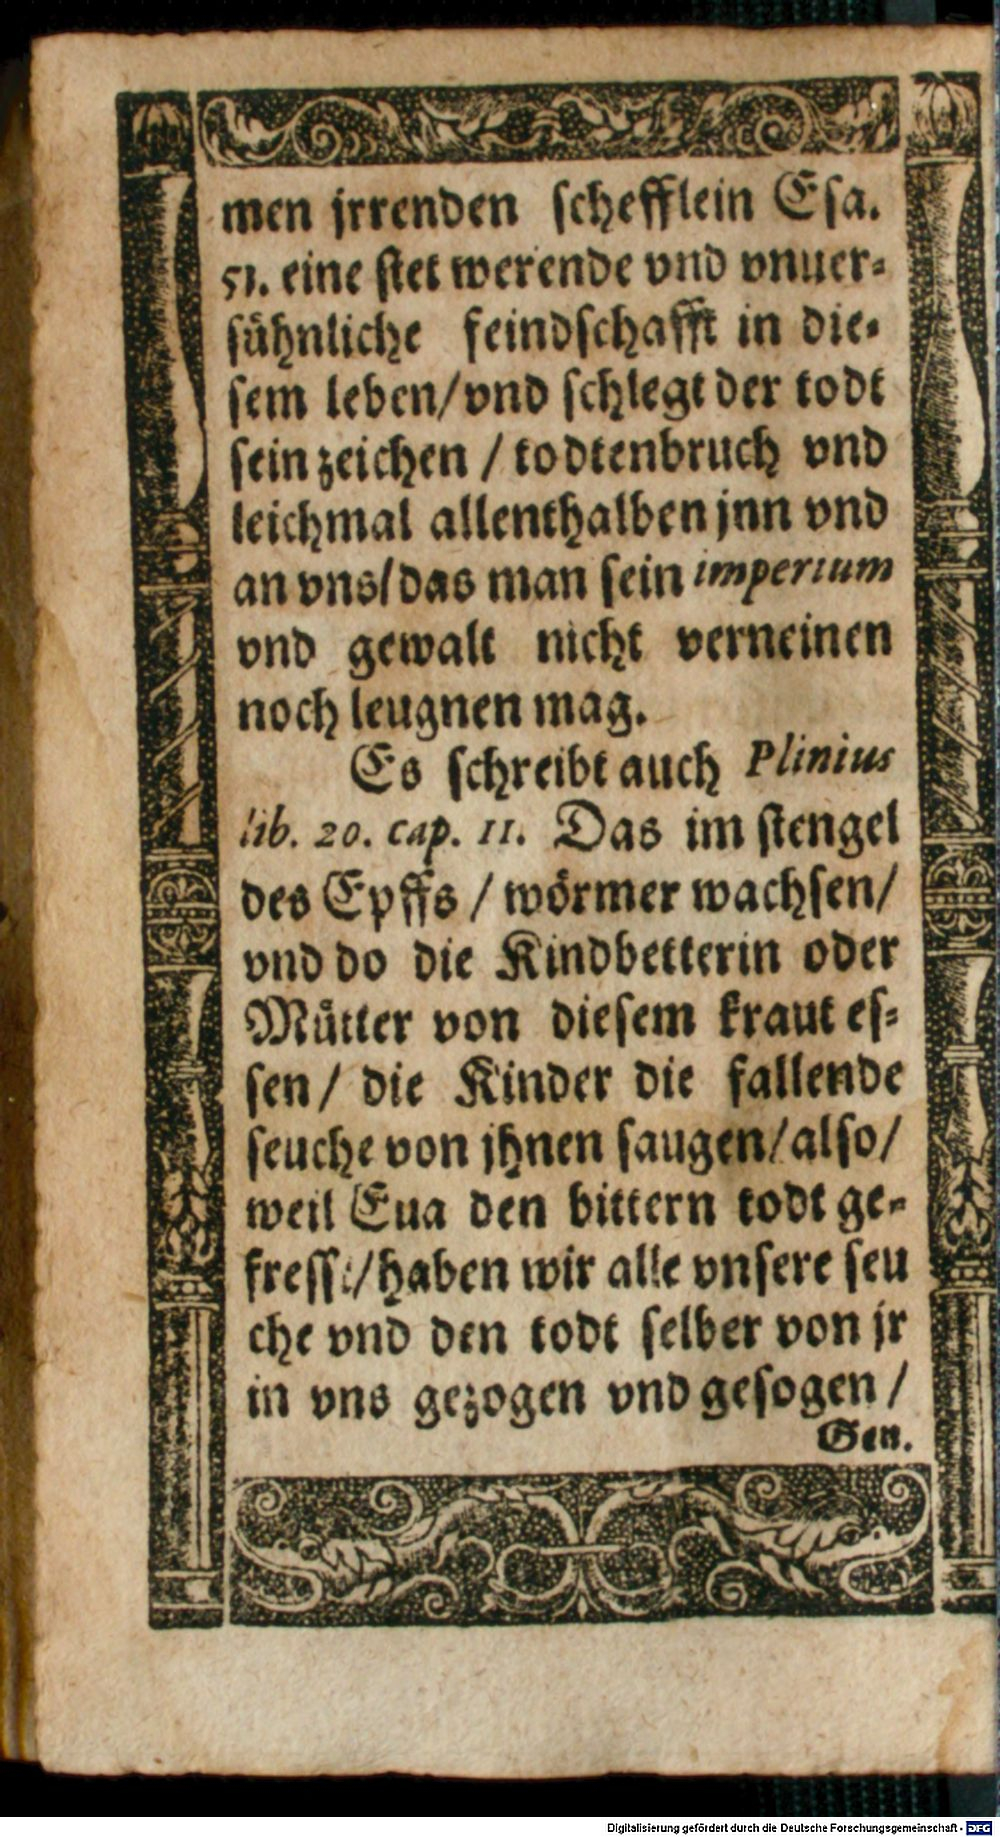 men jrrenden schefflein Esa.
51. eine stet werende vnd vnuer-
sühnliche feindschafft in die-
sem leben/vnd schlegt der todt
sein zeichen / todtenbruch vnd
leichmal allenthalben jnn vnd
an vns/das man sein imperium
vnd gewalt nicht verneinen
noch leugnen mag.
Es schreibt auch Plinius
lib. 20. cap. 11. Das im stengel
des Epffs / wörmer wachsen/
vnd do die Kindbetterin oder
Mütter von diesem kraut es-
sen/ die Kinder die fallende
seuche von jhnen saugen/also/
weil Eua den bittern todt ge-
/haben wir alle vnsere seu
che vnd den todt selber von jr
in vns gezogen vnd gesogen /
Gen.
Digitalisierung gefördert durch die Deutsche Forschungsgemeinschaft - DFG